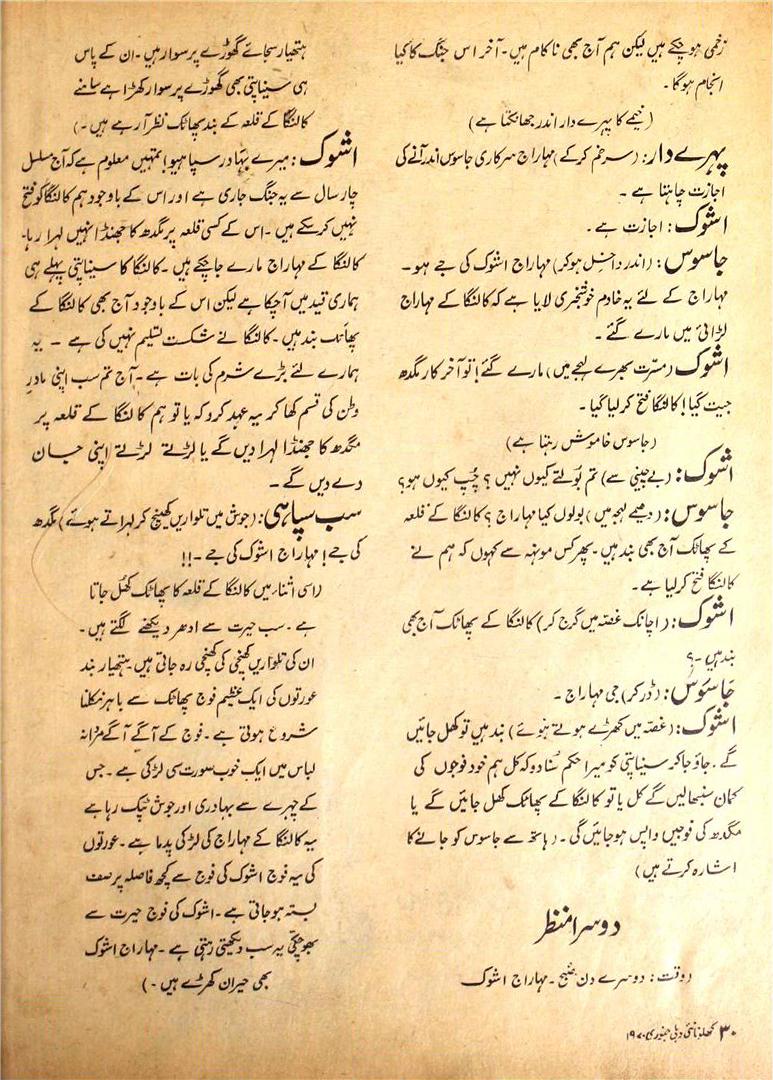 زخمی ہو چکے ہیں لیکن ہم آج بھی ناکام ہیں۔ آخر اس جنگ کا کیا
انجام ہوگا۔
(خیمے کا پہرے دار اندر جھانکتا ہے)
پہرے دار: (سر خم کر کے) مہاراج سرکاری جاسوس اندر آنے کی
اجازت چاہتا ہے۔
اشوک: اجازت ہے۔
جاسوس: (اندر داخل ہو کر) مہاراج اشوک کی جے ہو۔
مہاراج کے لئے یہ خادم خوشخبری لایا ہے کہ کالنگا کے مہاراج
لڑائی میں مارے گئے۔
اشوک (مسرّت بھرے لہجے میں) مارے گئے! تو آخر کار مگدھ
جیت گیا! کالنگا فتح کر لیا گیا۔
(جاسوس خاموش رہتا ہے)
اشوک: (بے چینی سے) تم بولتے کیوں نہیں؟ چُپ کیوں ہو؟
جاسوس: (دھیمے لہجہ میں) بولوں کیا مہاراج؟ کالنگا کے قلعہ
کے پھاٹک آج بھی بند ہیں۔ پھر کس مونہہ سے کہوں کہ ہم نے
کالنگا فتح کر لیا ہے۔
اشوک: (اچانک غصّہ میں گرج کر) کالنگا کے پھاٹک آج بھی
بند ہیں۔؟
جاسوس: (ڈر کر) جی مہاراج۔
اشوک: (غصّہ میں کھڑے ہوتے ہوئے) بند ہیں تو کھل جائیں
گے۔ جاؤ جا کر سیناپتی کو میرا حکم سُنا دو کہ کل ہم خود فوجوں کی
کمان سنبھالیں گے کل یا تو کالنگا کے پھاٹک کھل جائیں گے یا
مگدھ کی فوجیں واپس ہو جائیں گی۔ (ہاتھ سے جاسوس کو جانے کا
اشارہ کرتے ہیں)
دوسرا منظر
(وقت: دوسرے دن صبح۔ مہاراج اشوک
ہتھیار سجائے گھوڑے پر سوار ہیں۔ ان کے پاس
ہی سیناپتی بھی گھوڑے پر سوار کھڑا ہے سامنے
کالنگا کے قلعہ کے بند پھاٹک نظر آ رہے ہیں۔)
اشوک: میرے بہادر سپاہیو! تمہیں معلوم ہے کہ آج مسلسل
چار سال سے یہ جنگ جاری ہے اور اس کے باوجود ہم کالنگا کو فتح
نہیں کر سکے ہیں۔ اس کے کسی قلعہ پر مگدھ کا جھنڈا نہیں لہرا رہا۔
کالنگا کے مہاراج مارے جا چکے ہیں۔ کالنگا کا سیناپتی پہلے ہی
ہماری قید میں آ چکا ہے لیکن اس کے باوجود آج بھی کالنگا کے
پھاٹک بند ہیں۔ کالنگا نے شکست تسلیم نہیں کی ہے ۔ یہ
ہمارے لئے بڑے شرم کی بات ہے۔ آج تم سب اپنی مادرِ
وطن کی قسم کھا کر یہ عہد کرو کہ یا تو ہم کالنگا کے قلعہ پر
مگدھ کا جھنڈا لہرا دیں گے یا لڑتے لڑتے اپنی جان
دے دیں گے۔
سب سپاہی: (جوش میں تلواریں کھینچ کر لہراتے ہوئے) مگدھ
کی جے! مہاراج اشوک کی جے۔!!
(اسی اثناء میں کالنگا کے قلعہ کا پھاٹک کھُل جاتا
ہے۔ سب حیرت سے ادھر دیکھنے لگتے ہیں۔
ان کی تلواریں کھینچی کی کھنچی رہ جاتی ہیں۔ ہتھیار بند
عورتوں کی ایک عظیم فوج پھاٹک سے باہر نکلنا
شروع ہوتی ہے۔ فوج کے آگے آگے مردانہ
لباس میں ایک خوب صورت سی لڑکی ہے۔ جس
کے چہرے سے بہادری اور جوش ٹپک رہا ہے
یہ کالنگا کے مہاراج کی لڑکی پدما ہے۔ عورتوں
کی یہ فوج اشوک کی فوج سے کچھ فاصلہ پر صف
بستہ ہو جاتی ہے۔ اشوک کی فوج حیرت سے
بھوچکّی یہ سب دیکھتی رہتی ہے۔ مہاراج اشوک
بھی حیران کھڑے ہیں۔)
۳۰ کھلونا نئی دہلی جنوری ۱۹۷۰